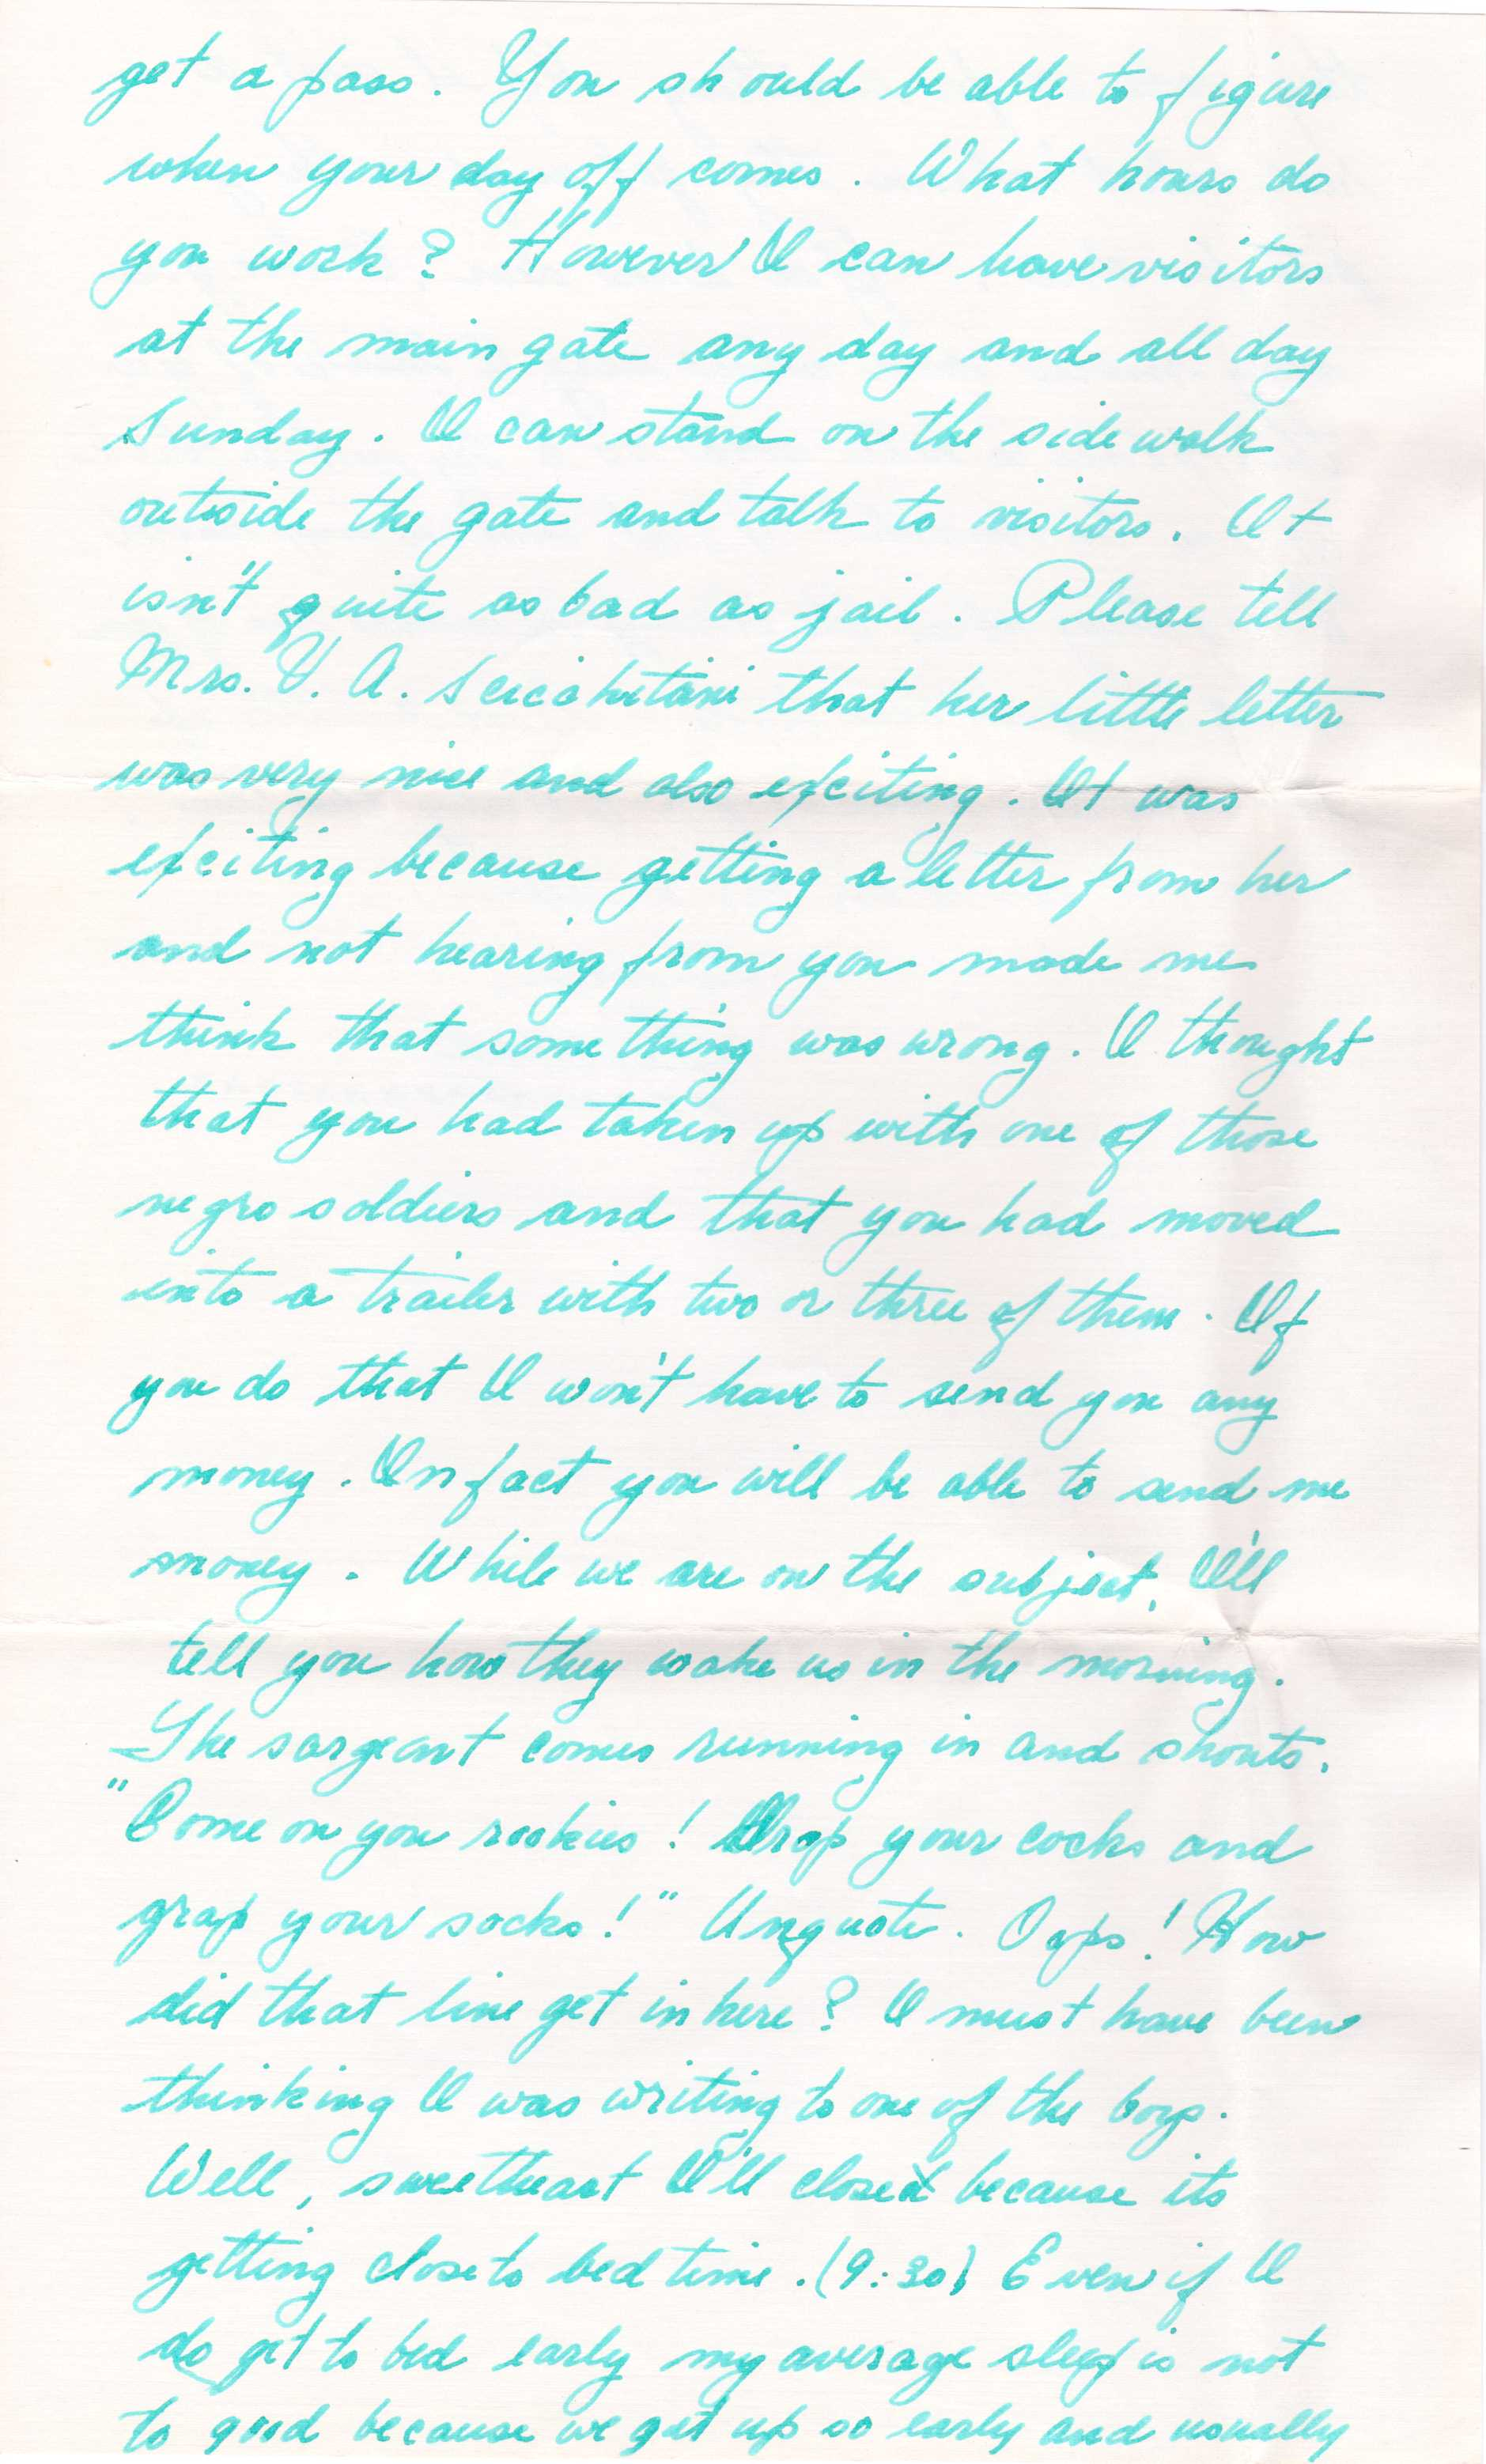 get a pass. You should be able to figure
when your day off comes. What hours do
you work? However I can have visitors
at the main gate any day and all day
Sunday. I can stand on the side walk
outside the gate and talk to visitors. It
isn't quite as bad as jail. Please tell
Mrs. V. A. that her little letter
was very nice and also exciting. It was
exciting because getting a letter from her
and not hearing from you made me
think that some thing was wrong. I thought
that you had taken up with one of those
negro soldiers and that you had moved
into a trailer with two or three of them. If
you do that I won't have to send you any
money. In fact you will be able to send me
money. While we are on the subject, I'll
tell you how they wake us in the morning.
The sargeant comes running in and shouts.
"Come on you rookies! Drop your cocks and
grap your socks!" Unquote. Oops! How
did that line get in here? I must have been
thinking I was writing to one of the boys.
Well, sweetheart I'll close because its
getting close to bed time. (9:30) Even if I
do get to bed early my average sleep is not
to good because we get up so early and usually